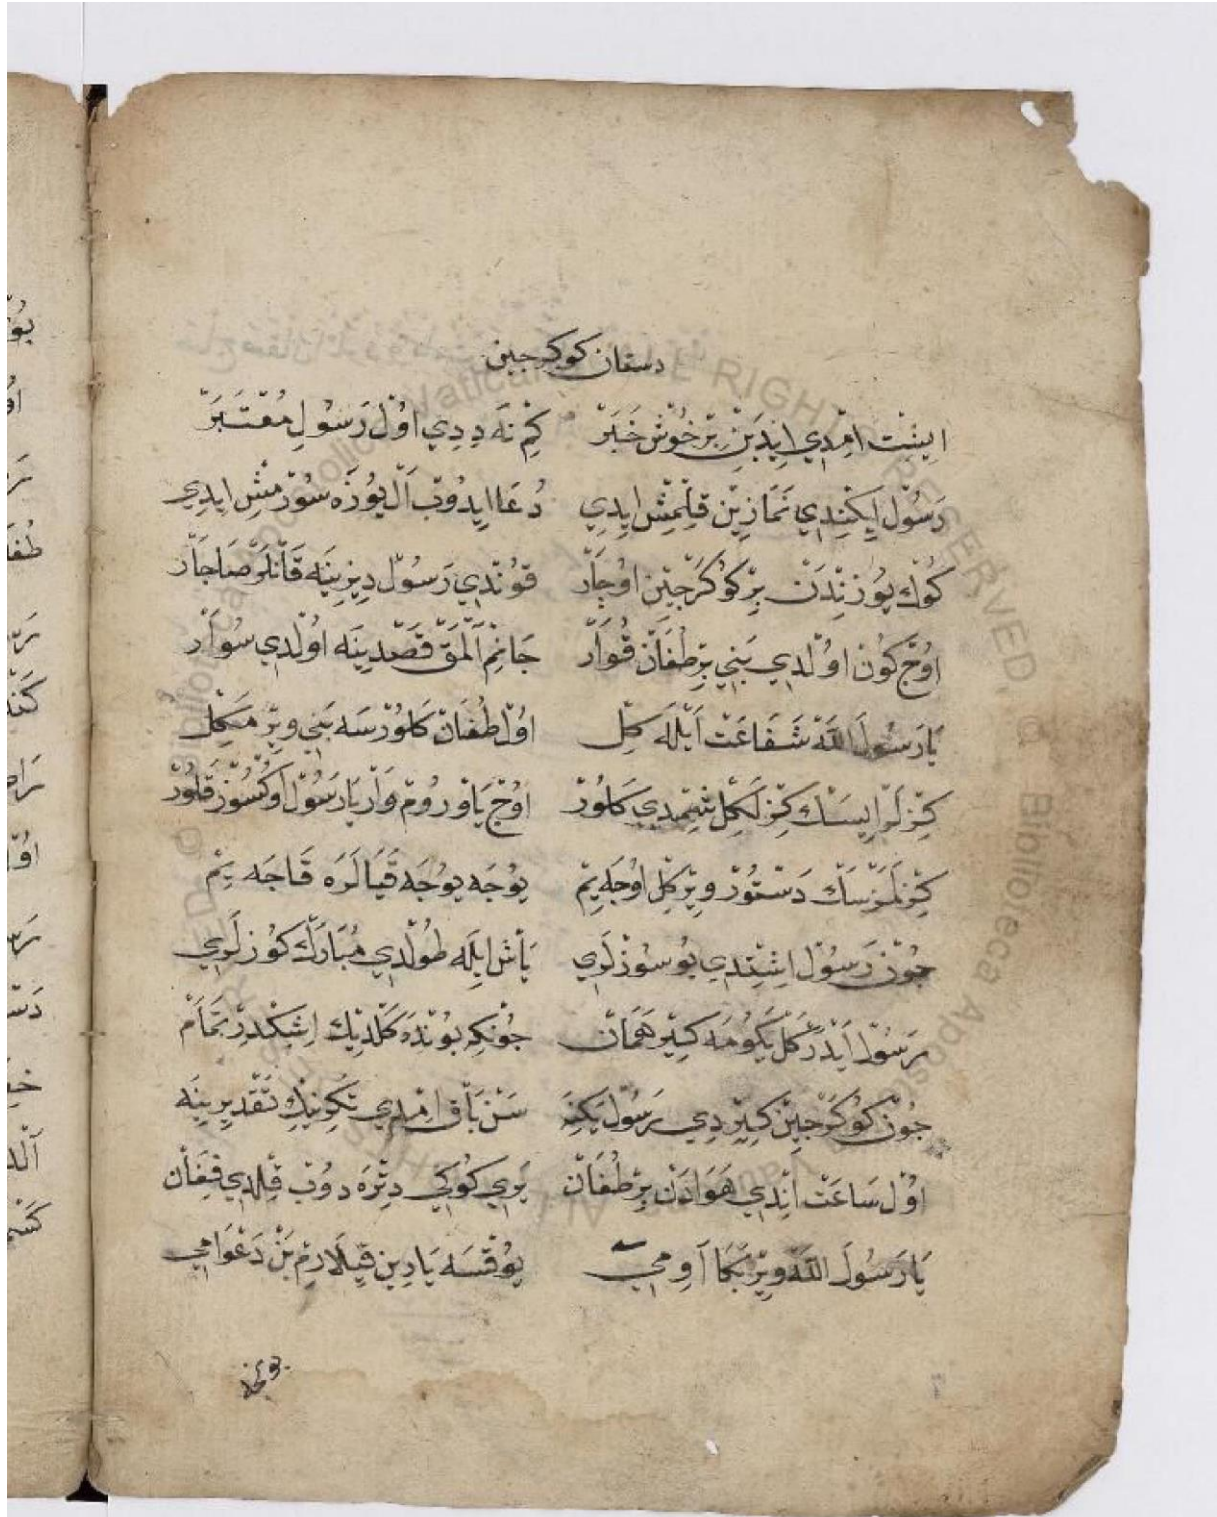 دستان كوكرجين
ايشت امدي ايديين بر خوش خبر كم نه ددي اول رسول معتبر
رسول ايكندي نمازين قلمش ايدي دعا ايدوب ال يوزه سورمش ايدي
كوك يوزندن بر كوكرجين اوجار قوندي رسول ديزينه قانلر صاجار
اوج كون اولدي بني بر طغان قوار جانم المق قصدينه اولدي سوار
يا رسول الله شفاعت ايله كل اول طغان كلورسه بني ويرمكل
كزلر ايسك كزلكل شمدي كلور اوج ياوروم وار يا رسول اوكسوز قلور
كزلمزسك دستور ويركل اوجه يم يوجه يوجه قيالره قاجه يم
جون رسول اشتدي بو سوزلري ياش ايله طولدي مبارك كوزلري
رسول ايدر كل يكومه كير همان جونكه بونده كلديك اشكدر تمام
جون كوكرجين كيردي رسول يكنه سن باق امدي تكرينك تقديرينه
اول ساعت اندي هوادن بر طغان يري كوكي دتره دوب قلدي فغان
يا رسول الله وير بكا اومي يوقسه يارين قيلارم بن دعوامي